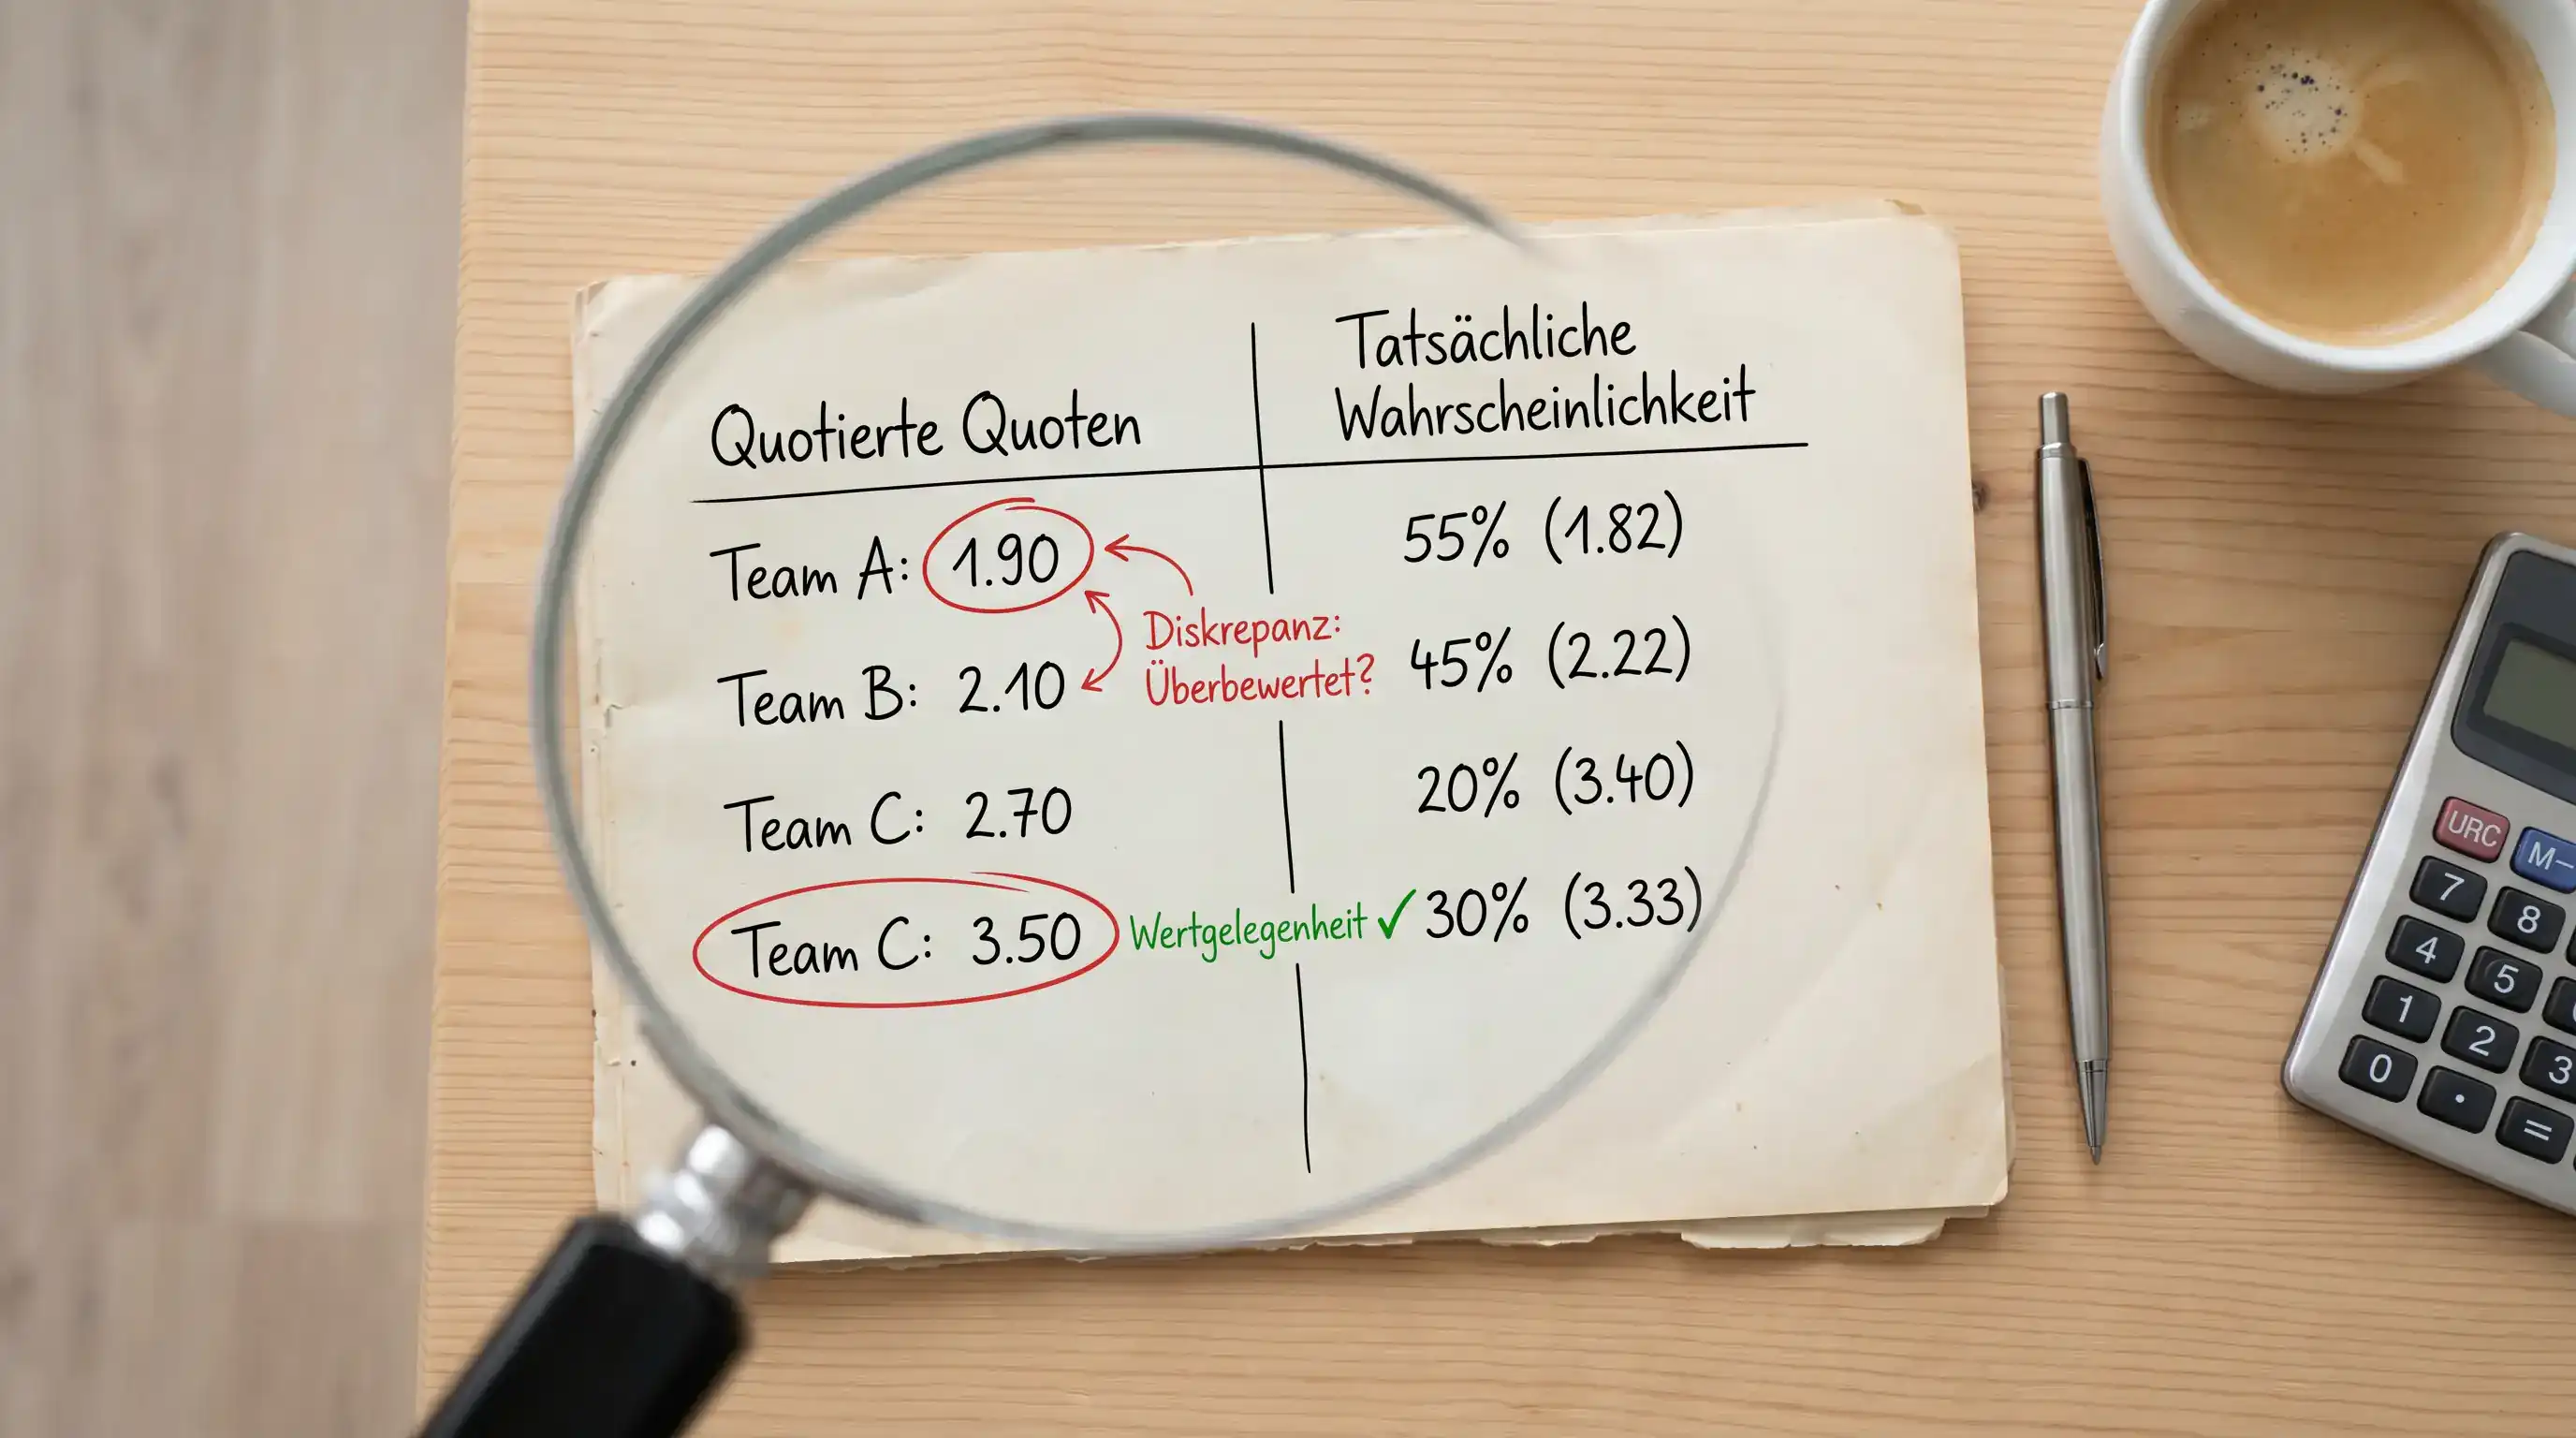 Quotierte Quoten
Tatsächliche
Wahrscheinlichkeit
Team A: 1.90
55% (1.82)
Diskrepanz:
Überbewertet?
Team B: 2.10
45% (2.22)
Team C: 2.70
20% (3.40)
Team C: 3.50
Wertgelegenheit ✓
30% (3.33)
URC
M-
7
8
4
5
1
2
3
0
.
=